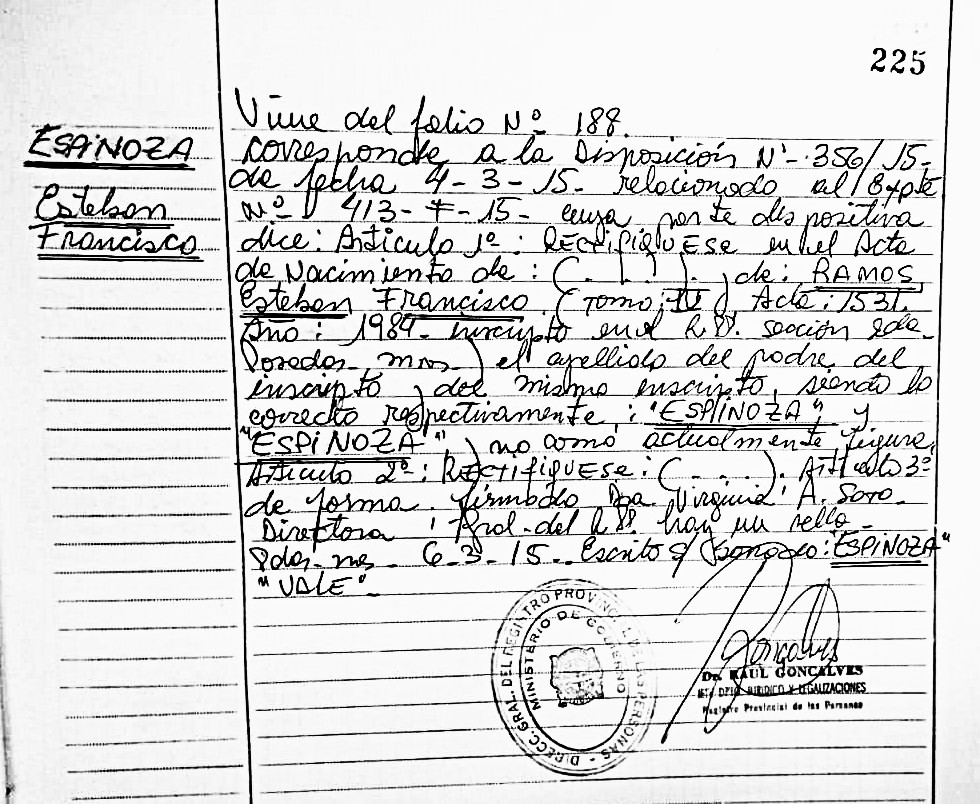 225
ESPINOZA
Esteban
Francisco
Viene del folio Nº 188.
corresponde a la Disposición Nº 356/15-
de fecha 4-3-15- relacionado al Expte
Nº 413-F-15- cuya parte dispositiva
dice: Artículo 1º: RECTIFIQUESE en el Acta
de Nacimiento de: (. . .). de: RAMOS
Esteban Francisco (Tomo: Acta: 1531.
Año: 1984- inscripto en el R.P. sección 2da-
Posadas. Mnes) el apellido del padre del
inscripto y del mismo inscripto, siendo lo
correcto respectivamente: "ESPINOZA" y
"ESPINOZA" y no como actualmente figura.
Artículo 2º: RECTIFIQUESE: (. . .). Artículo 3º
de forma. firmado Dra Virginia A.
Directora Gral. del R.P. hay un sello-
Pdas. Mnes- 6-3-15.. Escrito s/ : "ESPINOZA"
"VALE"-
DIRECC. GRAL. DEL REGISTRO PROVINCIAL DE LAS PERSONAS -
MINISTERIO DE GOBIERNO
Dr. RAUL GONCALVES
JURIDICO Y LEGALIZACIONES
Registro Provincial de las Personas